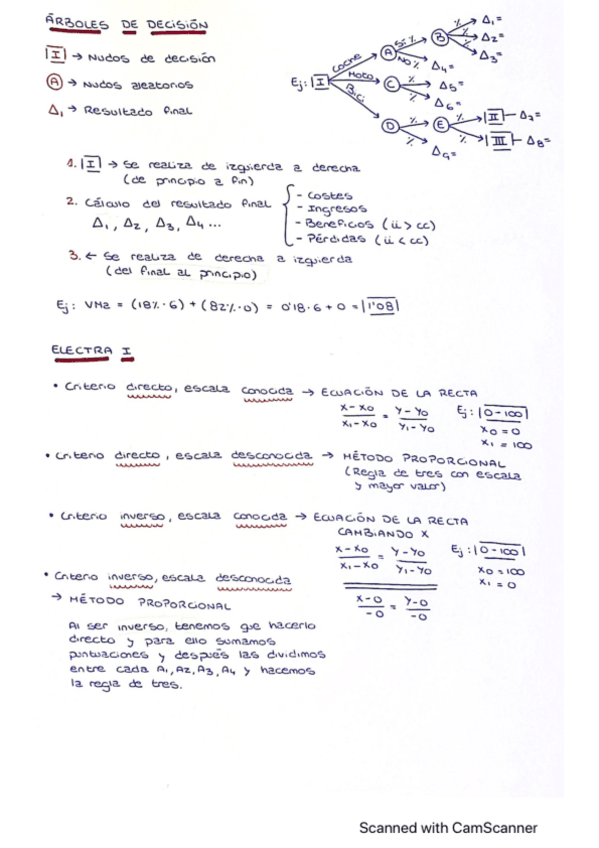 ÁRBOLES DE DECISIÓN
I → Nudos de decisión
A → Nudos aleatorios
Δ1 → Resultado final
Ej: I
Coche
Moto
Bici
A
Sí %
No %
B
%
%
Δ1=
Δ2=
Δ3=
Δ4=
C
%
%
Δ5=
Δ6=
D
%
%
E
%
%
II Δ7=
III Δ8=
Δ9=
1. I → Se realiza de izquierda a derecha
(de principio a fin)
2. Cálculo del resultado final
Δ1, Δ2, Δ3, Δ4 ...
- Costes
- Ingresos
- Beneficios (ii > cc)
- Pérdidas (ii < cc)
3. ← Se realiza de derecha a izquierda
(del final al principio)
Ej: VH2 = (18%·6) + (82%·0) = 0'18·6 + 0 = 1'08
ELECTRA I
• Criterio directo, escala conocida → ECUACIÓN DE LA RECTA
x-x0/x1-x0 = y-y0/y1-y0
Ej: 0-100
x0 = 0
x1 = 100
• Criterio directo, escala desconocida → MÉTODO PROPORCIONAL
(Regla de tres con escala
y mayor valor)
• Criterio inverso, escala conocida → ECUACIÓN DE LA RECTA
CAMBIANDO X
x-x0/x1-x0 = y-y0/y1-y0
Ej: 0-100
x0 = 100
x1 = 0
x-0/-0 = y-0/-0
• Criterio inverso, escala desconocida
→ MÉTODO PROPORCIONAL
Al ser inverso, tenemos que hacerlo
directo y para ello sumamos
puntuaciones y después las dividimos
entre cada A1, A2, A3, A4 y hacemos
la regla de tres.
Scanned with CamScanner